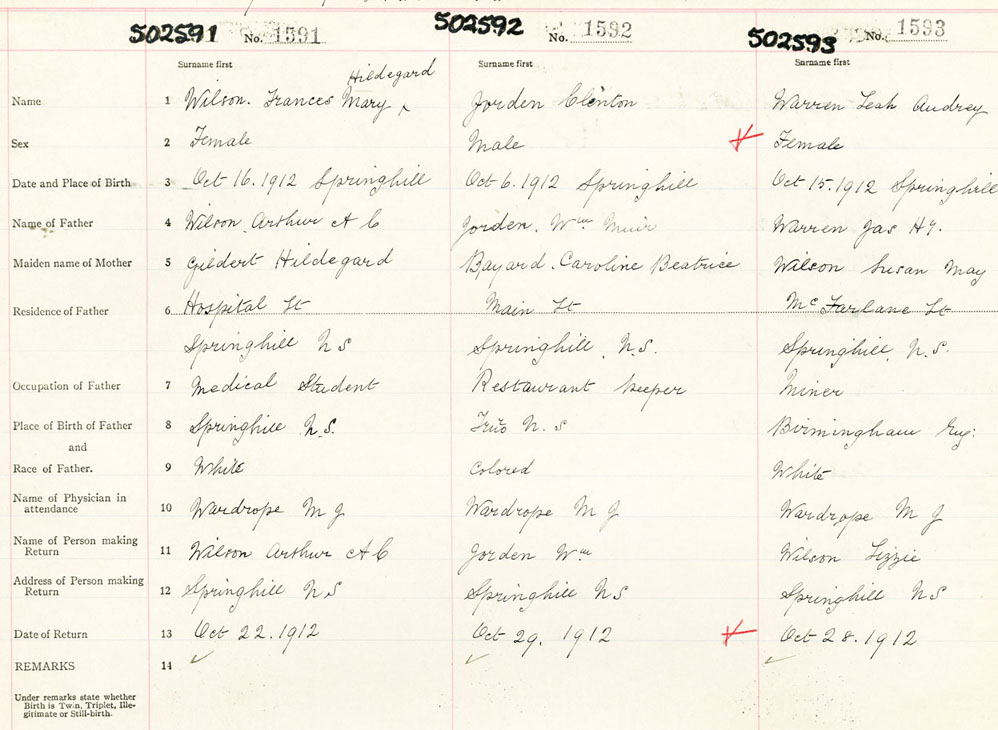 502591 No. 1591 502592 No. 1592 502593 No. 1593
Surname first Surname first Surname first
Hildegard
Name 1 Wilson. Frances Mary ^ Jorden Clenton Warren Leah Audrey
Sex 2 Female Male Female
Date and Place of Birth 3 Oct 16. 1912 Springhill Oct 6. 1912 Springhill Oct 15. 1912 Springhill
Name of Father 4 Wilson. Arthur A C Jorden. Wm Muir Warren Jas Hy.
Maiden name of Mother 5 Gildert Hildegard Bayard. Caroline Beatrice Wilson Susan May
Residence of Father 6 Hospital St Main St McFarlane St
Springhill N S Springhill. N.S. Springhill. N.S.
Occupation of Father 7 Medical Student Restaurant keeper Miner
Place of Birth of Father 8 Springhill N.S. N. S Birmingham Eng.
and
Race of Father. 9 White Colored White
Name of Physician in
attendance 10 Wardrope M J Wardrope M J Wardrope M J
Name of Person making
Return 11 Wilson Arthur A C Jorden Wm Wilson Lizzie
Address of Person making
Return 12 Springhill N S Springhill N S Springhill N S
Date of Return 13 Oct 22. 1912 Oct 29. 1912 Oct 28. 1912
REMARKS 14
Under remarks state whether
Birth is Twin, Triplet, Ille-
gitimate or Still-birth.